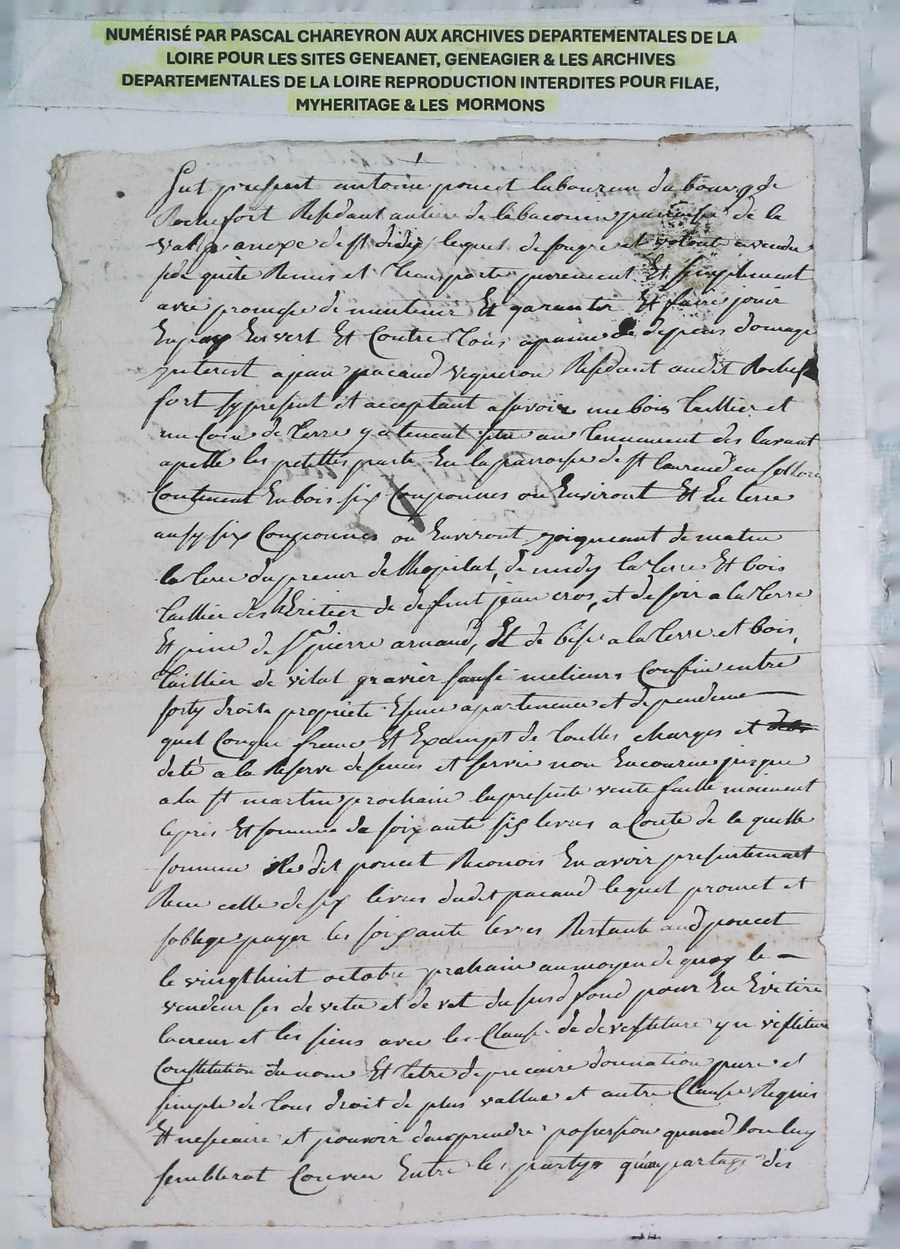 NUMÉRISÉ PAR PASCAL CHAREYRON AUX ARCHIVES DEPARTEMENTALES DE LA
LOIRE POUR LES SITES GENEANET, GENEAGIER & LES ARCHIVES
DEPARTEMENTALES DE LA LOIRE REPRODUCTION INTERDITES POUR FILAE,
MYHERITAGE & LES MORMONS
fut present antoine poncet laboureur du bourg de
Rochefort Residant au lieu de paroisse de la
Valla anexe de st didie lequel de son gre et volonte a vendu
quite Remis et Transporte purement Et simplement
avec promesse de mintenir Et garantir Et faire jouir
Envert Et Contre Tous a paine de depens domage
jnterest a jean pacaud vigneron Residant audit Roche
fort sy present et acceptant a savoir un bois Taillier et
un Coin de Terre y atenant au Tennement des
apelle les petittes parts En la parroisse de st laurend en sollore
Contenant En bois six Couponnes ou Environt Et En terre
aussy six Couponnes ou Environt joigneant de matin
la terre du preneur de midy la terre Et bois
Taillier des hEritier de defunt jean cros, et de soir a la Terre
Et de sr pierre arnaud, Et de bise a la Terre et bois
Taillier de vital gravier saufs milieurs Confin entre
sorty droits propriete apartenence et dependence
quel Conque franc Et Exampt de Touttes charges et
dete a la Reserve de et servis non Encourue jusque
a la st martin prochain la presente vente faitte moienent
le pris Et somme de soixante six livres a Conte de la quelle
somme Le dit poncet Reconois En avoir presentement
Receu celle de six livres dudit pacaud lequel promet et
soblige payer les soixante livres Restante aud poncet
le vingthuit octobre prochain au moyen de quoy le
vendeur ses devetu et devet du susd fond pour En
et les siens avec les Clause de devestiture
Constitution du nom Et titre de precaire donnation pure et
simple de Tous droit de plus vallue et autre Clause Requis
Et nessaire et pouvoir dan prendre possession quand bon luy
semblerat Convenu Entre les partys partage des